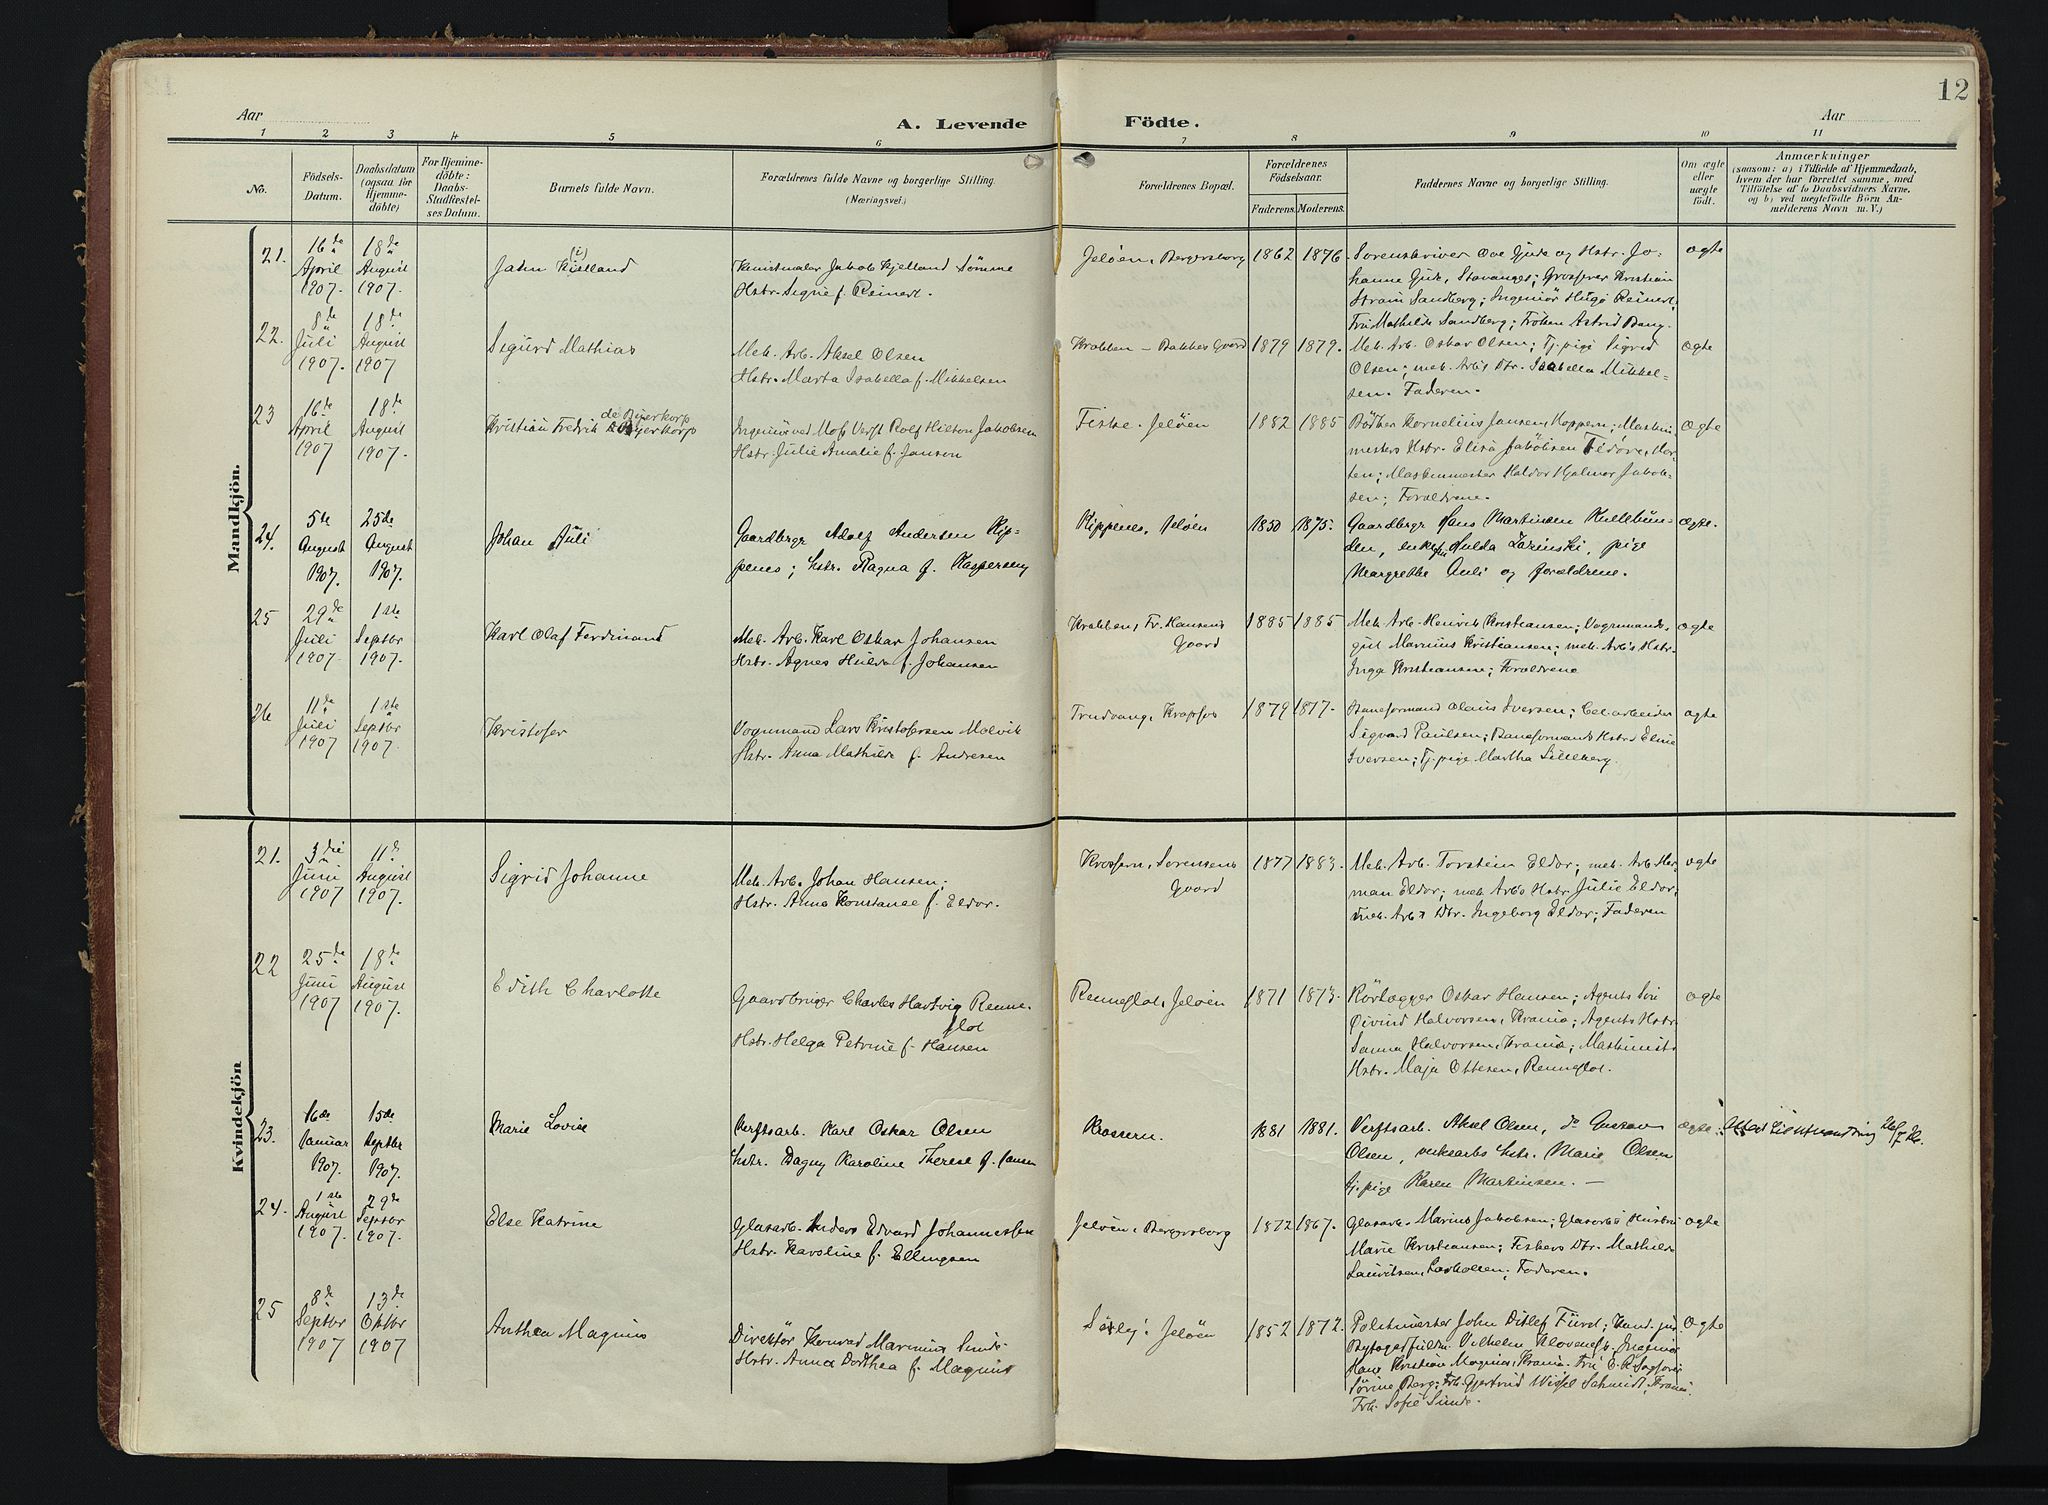 12
Aar
A. Levende
Födte.
Aar
1 2 3 4 5 6 7 8 9 10 11
No.
Födsels-
Datum.
Daabsdatum
(ogsaa for
Hjemme-
döbte)
For Hjemme-
döbte:
Daabs-
Stadfæstel-
ses Datum.
Barnets fulde Navn.
Forældrenes fulde Navne og borgerlige Stilling.
(Næringsvei.)
Forældrenes Bopæl.
Forældrenes
Födselsaar.
Faderens. Moderens.
Faddernes Navne og borgerlige Stilling.
Om ægte
eller
uægte
födt.
Anmærkninger
(saasom: a) i Tilfælde af Hjemmedaab,
hvem der har forrettet samme, med
Tilföielse af to Daabsvidners Navne,
og b) ved uegtefödte Börn An-
melderens Navn m. V.)
Mandkjön.
21.
16de
April
1907.
18de
August
1907.
Jahn Kielland
Kunstmaler Jakob Kjelland Sömme
Hstr. Signe f. Reinert.
Jelöen, Bergersborg
1862 1876.
Sorenskriver Ove Gude og Hstr. Jo-
hanne Gude, Stavanger; Grosserer Kristian
Sandberg; Ingeniör Hugo Reinert;
Fru Mathilde Sandberg; Fröken Astrid Bang.
ægte
22.
8de
Juli
1907.
18de
August
1907
Sigurd Mathias
Mek. Arb. Aksel Olsen
Hstr. Marta Isabella f. Mikkelsen
Krabben - Bakkes Gaard
1879 1879.
Mek. Arb. Oskar Olsen; Tj. pige Sigrid
Olsen; mek. Arb's Dtr. Isabella Mikkel-
sen. Faderen.
ægte
23
16de
April
1907
18de
August
1907.
Kristian Fredrik
Ingeniör ved Moss Verft Rolf Hilton Jakobsen
Hstr. Julie Amalie f. Janson
Fiske. Jelöen
1882 1885
Bödker Kornelius Jansen, Moppern; Maskin-
mesters Hstr. Elisa Jakobsen
Maskinmester Haldor Hjalmar Jakob-
sen; Forældrene.
ægte
24.
5te
August
1907.
25de
August
1907.
Johan Juli
Gaardbrgr Adolf Andersen Kip-
penes; hstr. Ragna f. Kaspersen
Kippenes, Jelöen
1850 1875.
Gaardbrgr Hans Martinsen Kullebun-
den, enkefru Hulda Lazinski, pige
Margrethe Juli og forældrene.
ægte.
25
29de
Juli
1907.
1ste
Septbr
1907.
Karl Olaf Ferdinand
Mek. Arb. Karl Oskar Johansen
Hstr. Agnes Hulda f. Johansen
Krabben, Fr. Hansens
Gaard
1885 1885
Mek. Arb. Henrik Kristiansen; Vognmands-
gut Marinius Kristiansen; mek. Arb's Hstr.
Inga Kristiansen; Forældrene
ægte
26
11de
Juli
1907
1ste
Septbr
1907.
Kristofer
Vognmand Lars Kristofersen Molvik
Hstr. Anna Mathilde f. Andresen
Trudvang, Krapfos
1879 1877.
Baneformand Olaus Iversen; Cel. arbeider
Sigvard Paulsen; Baneformands Hstr. Eline
Iversen; Tj. pige Martha Lilleberg.
ægte
Kvindekjön
21.
3die
Juni
1907
11de
August
1907.
Sigrid Johanne
Mek. Arb. Johan Hansen;
Hstr. Anna Konstance f. Eldor.
Krossern, Sorensens
Gaard
1877 1883.
Mek. Arb. Torstein Eldor; mek. Arb. Her-
man Eldor; mek. Arb's Hstr Julie Eldor;
mek. Arb's Dtr. Ingeborg Eldor; Faderen
ægte
22
25de
Juni
1907
18de
August
1907.
Edith Charlotte
Gaardbruger Charles Hartvig Renne-
flot
Hstr. Helga Petrine f. Hansen
Renneflot, Jelöen
1871 1873.
Rörlægger Oskar Hansen; Agents Sön
Øivind Halvorsen, Krania; Agents Hstr.
Sanna Halvorsen, Krania; Maskinist
Hstr. Maja Ottesen, Renneflot.
ægte
23.
16de
Januar
1907.
15de
Septbr
1907.
Marie Lovise
Verftsarb. Karl Oskar Olsen
hstr. Dagny Karoline Therese f. Jansen
Krossern.
1881 1881.
Verftsarb. Aksel Olsen, do Gustav
Olsen, verksarbs hstr. Marie Olsen
tj. pige Karen Martinsen. —
ægte.
24.
1ste
August
1907.
29de
Septbr
1907.
Else Katrine
Glasarb. Anders Edvard Johannessen
Hstr. Karoline f. Ellingsen
Jelöen, Bergersborg
1872 1867.
Glasarb. Marius Jakobsen; Glasarbs Hustru
Marie Kristiansen; Fiskers Dtr. Mathilde
Lauritsen, Larkollen; Faderen.
ægte
25
8de
Septbr
1907
13de
Oktbr
1907
Anthea Magnus
Direktör Konrad Marinius Sunde
Hstr. Anna Dorthea f. Magnus
Jelöen
1852 1872.
Politimester John Ditlef Fürst; Kand. jur.
Vilhelm Ingeniör
Hans Kristian Magnus, Krania. Fru
Sörine Berg; Frk. Gjertrud Wissel Schmidt, Krania.
Frk. Sofie Sunde.
ægte